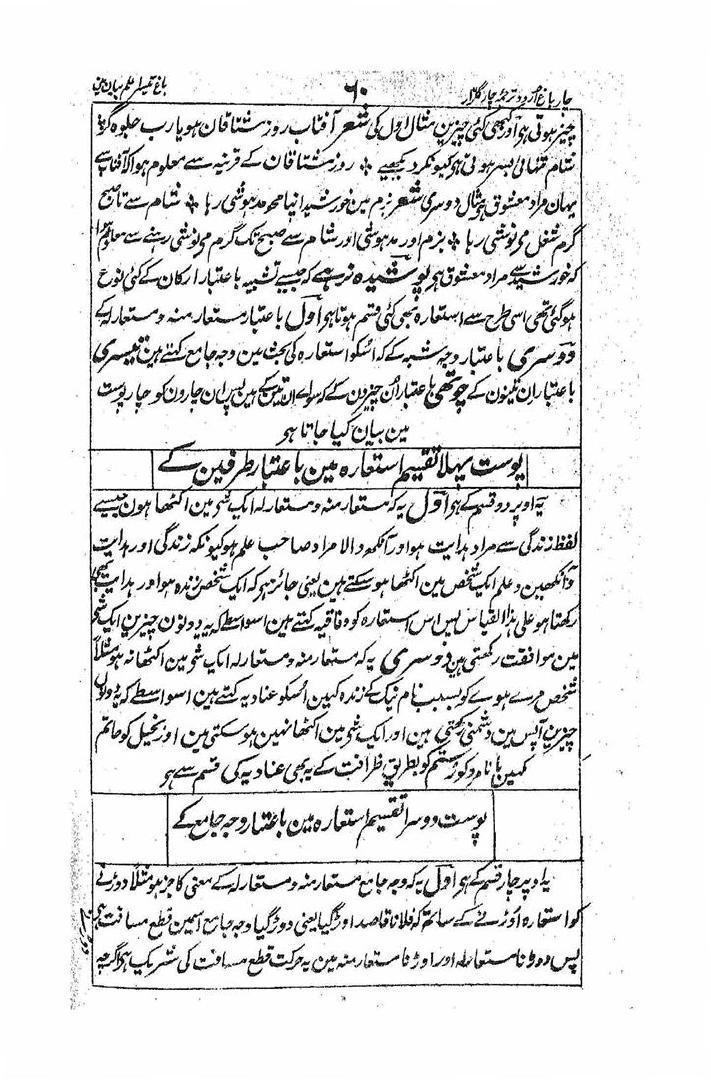 چار باغ اردو ترجمہ چار گلزار ۶۰ باغ تیسرا علم بیان مین
چیز ہوتی ہی اور کبھی کئی چیزین مثال اول کی شعر آفتاب روز مشتاقان ہو یا رب جلوہ گر
شام تنہائی بسر ہوتی ہی کیونکر دیکھیے ٭ روز مشتاقان کے قرینہ سے معلوم ہوا کہ آفتاب سے
یہان مراد معشوق ہی مثال دوسری شعر بزم مین خورشید اپنا محو مدہوشی رہا ٭ شام سے تا صبح
گرم شغل می نوشی رہا ٭ بزم اور مدہوشی اور شام سے صبح تک گرم می نوشی رہنے سے معلوم ہوا
کہ خورشید سے مراد معشوق ہی پوشیدہ نرہے کہ جیسے تشبیہ باعتبار ارکان کے کئی نوع
ہو گئی تھی اسی طرح سے استعارہ بھی کئی قسم ہوتا ہی اول باعتبار مستعار منہ و مستعار لہ کے
دوسری باعتبار وجہ شبہ کے کہ اُسکو استعارہ کی بحث مین وجہ جامع کہتے ہین تیسری
باعتبار ان تینون کے چوتھی باعتبار اُن چیزون کے کہ سواے ان تین کے ہین پس ان چارون کو چار پوست
مین بیان کیا جاتا ہی
پوست پہلا تقسیم استعارہ مین باعتبار طرفین کے
یہ اوپر دو قسم کے ہی اول یہ کہ مستعار منہ و مستعار لہ ایک شی مین اکٹھا ہون جیسے
لفظ زندگی سے مراد ہدایت ہو اور آنکھہ والا مراد صاحب علم ہو کیونکہ زندگی اور ہدایت
و آنکھین و علم ایک شخص مین اکٹھا ہو سکتے ہین یعنی جائز ہی کہ ایک شخص زندہ ہو اور ہدایت بھی
رکھتا ہو علی ہذا القیاس پس اس استعارہ کو وفاقیہ کہتے ہین اسواسطے کہ یہ دونون چیزین ایک شی
مین موافقت رکھتی ہین دوسری یہ کہ مستعار منہ و مستعار لہ ایک شی مین اکٹھا نہ ہو مثلاً
شخص مرے ہوے کو بسبب نام نیک کے زندہ کہین اُسکو عنادیہ کہتے ہین اسواسطے کہ یہ دونون
چیزین آپس مین دشمنی رکھتی ہین اور ایک شی مین اکٹھا نہین ہو سکتی ہین اور بخیل کو حاتم
کہین یا نامرد کو رستم کو بطریق ظرافت کے یہ بھی عنادیہ کی قسم سے ہی
پوست دوسرا تقسیم استعارہ مین باعتبار وجہ جامع کے
یہ اوپر چار قسم کے ہی اول یہ کہ وجہ جامع مستعار منہ و مستعار لہ کے معنی کا جز ہو مثلاً دوڑنے
کو استعارہ اوڑنے کے ساتھ کہ فلانا قاصد اوڑ گیا یعنی دوڑ گیا وجہ جامع اسمین قطع مسافت ہی
پس دوڑنا مستعار لہ اور اوڑنا مستعار منہ مین یہ حرکت قطع مسافت کی شریک ہی اگرچہ